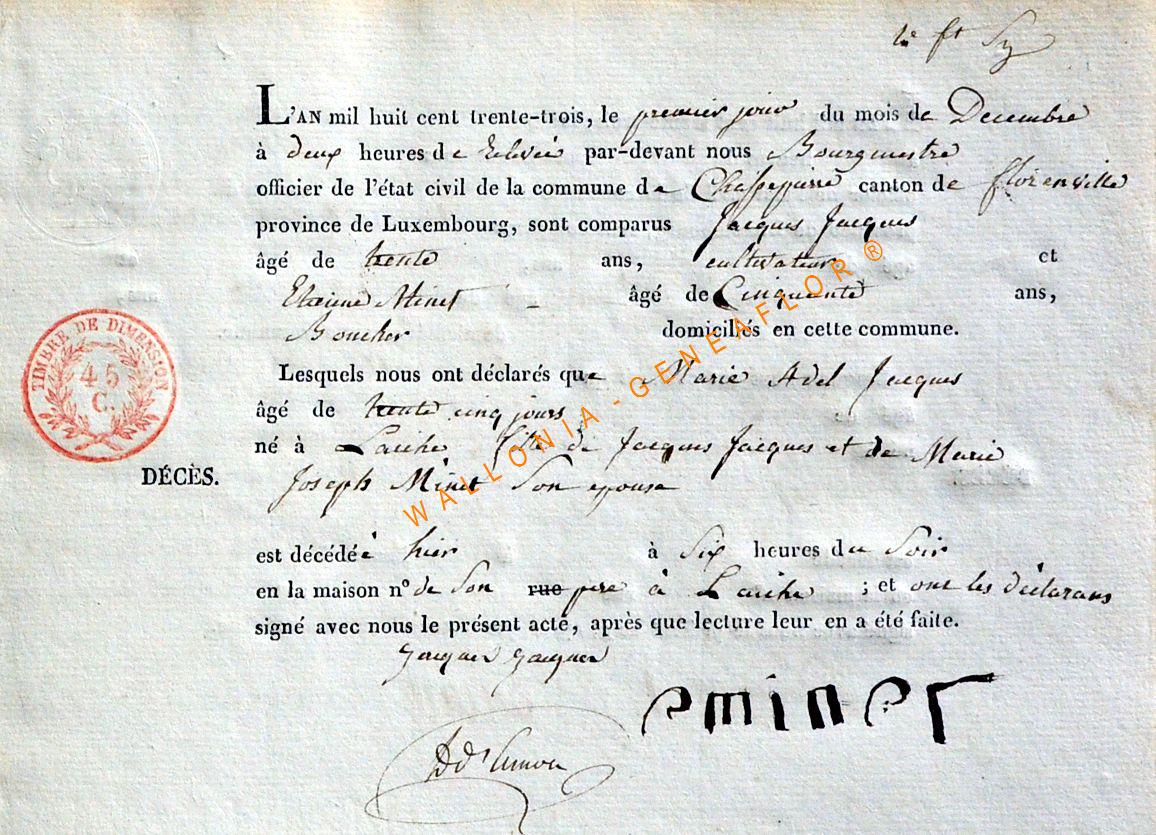 L'AN mil huit cent trente-trois, le premier jour du mois de Decembre
à deux heures de Relevée par-devant nous Bourgmestre
officier de l'état civil de la commune de Chassepierre canton de florenville
province de Luxembourg, sont comparus Jacques Jacques
âgé de trente ans, cultivateur et
Etienne Minet âgé de Cinquante ans,
Boucher domiciliés en cette commune.
Lesquels nous ont déclarés que Marie Adel Jacques
âgé de trente cinq jours
né à Laiche fille de Jacques Jacques et de Marie
DÉCÈS.
Joseph Minet Son epouse
est décédée hier à Six heures du Soir
en la maison nº de Son rue pere à Laiche ; et ont les déclarans
signé avec nous le présent acte, après que lecture leur en a été faite.
Jacques Jacques
eminet
TIMBRE DE DIMENSION
45
C.
WALLONIA-GENEAFLOR®